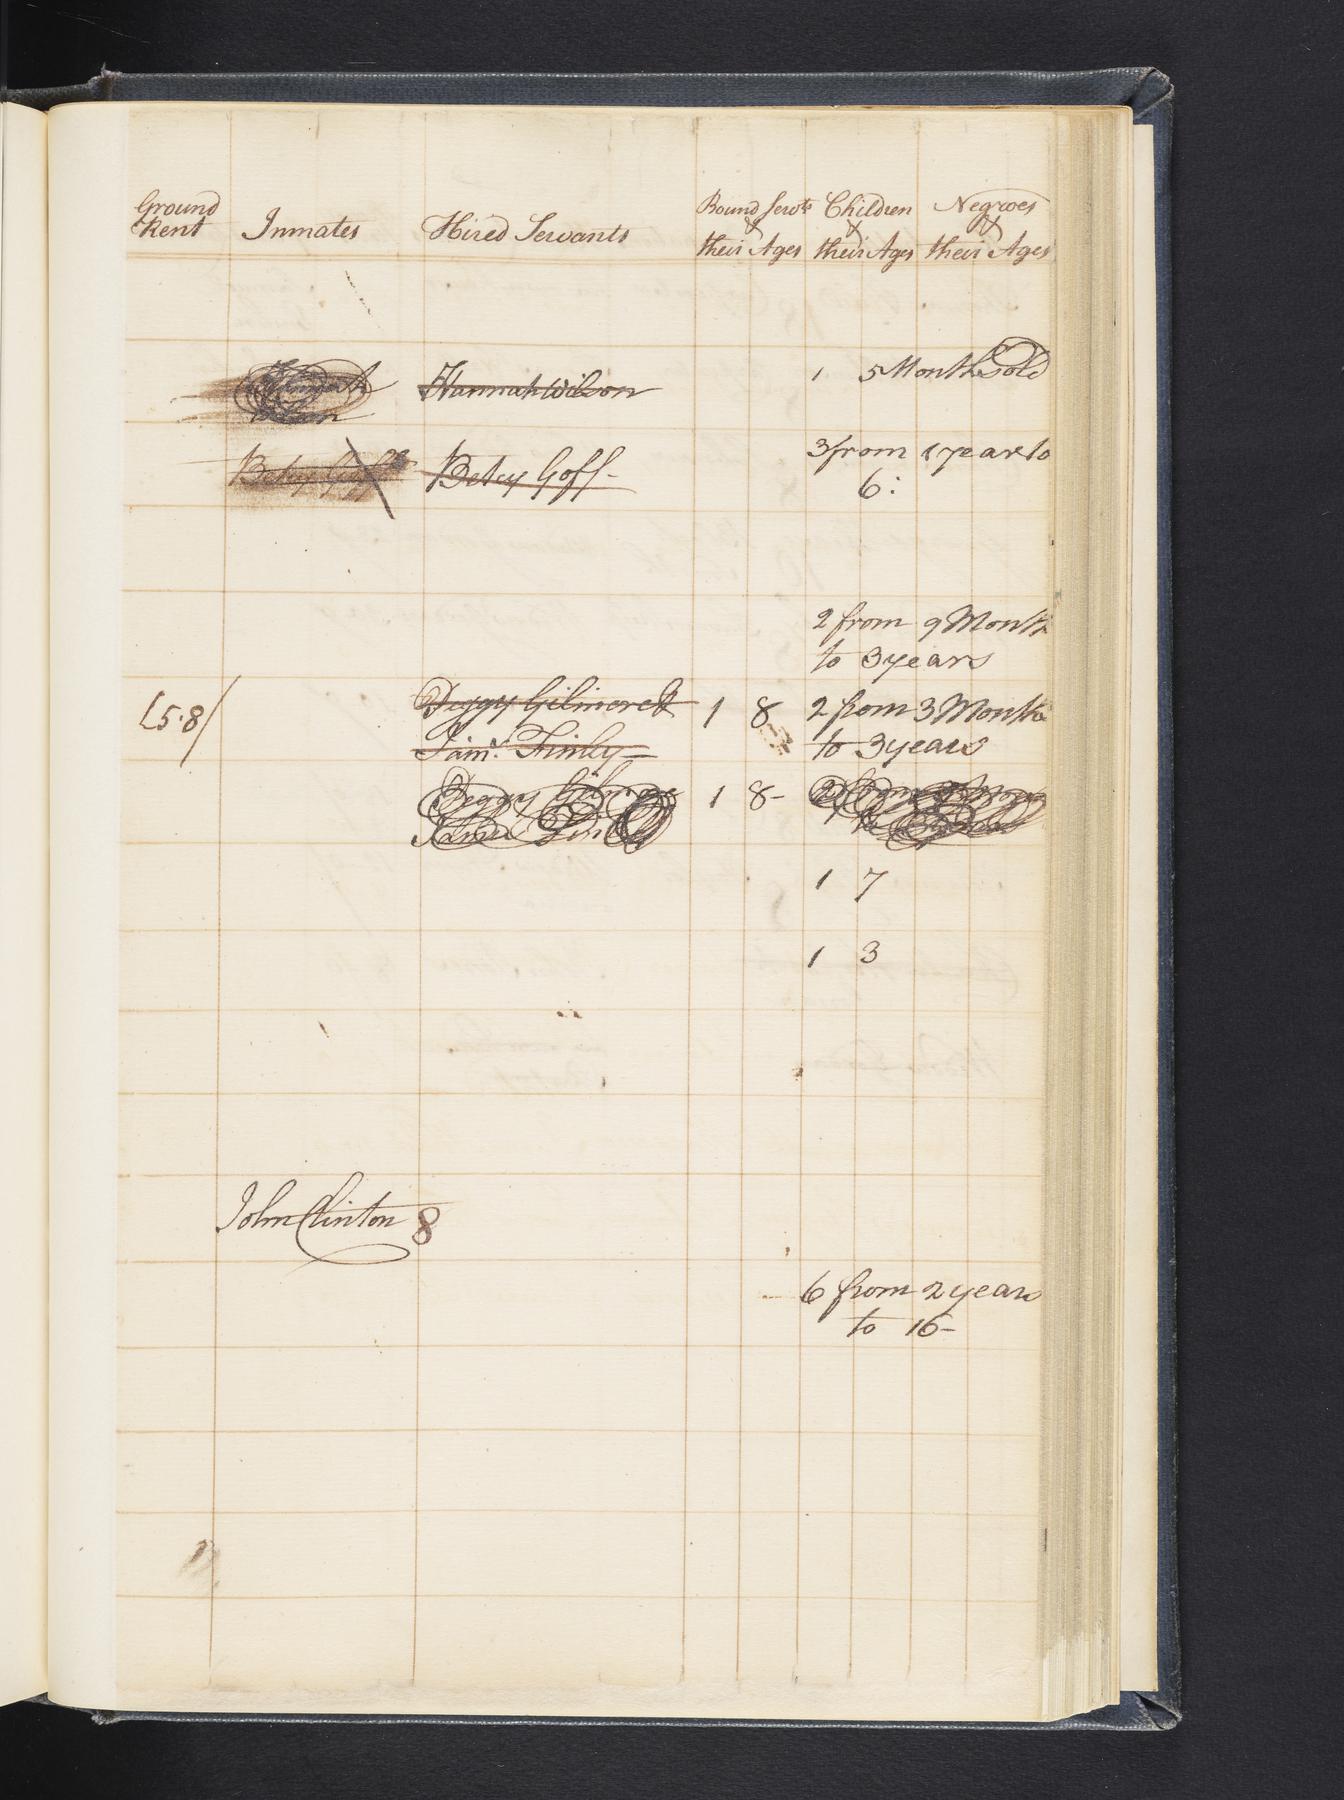 Ground Rent
Inmates
Hired Servants
Bound Servts & their Ages
Children & their Ages
Negroes & their Ages
Hannah Wilson
1 5 Months Old
Betsy Goff
Betsy Goff -
3 from 1 year to
6:
2 from 9 Month
to 3 years
£5.8/
Peggy
1 8
2 from 3 Months
to 3 years
Finly
Peggy
1 8-
1 7
1 3
John Clinton 8
6 from 2 years
to 16-